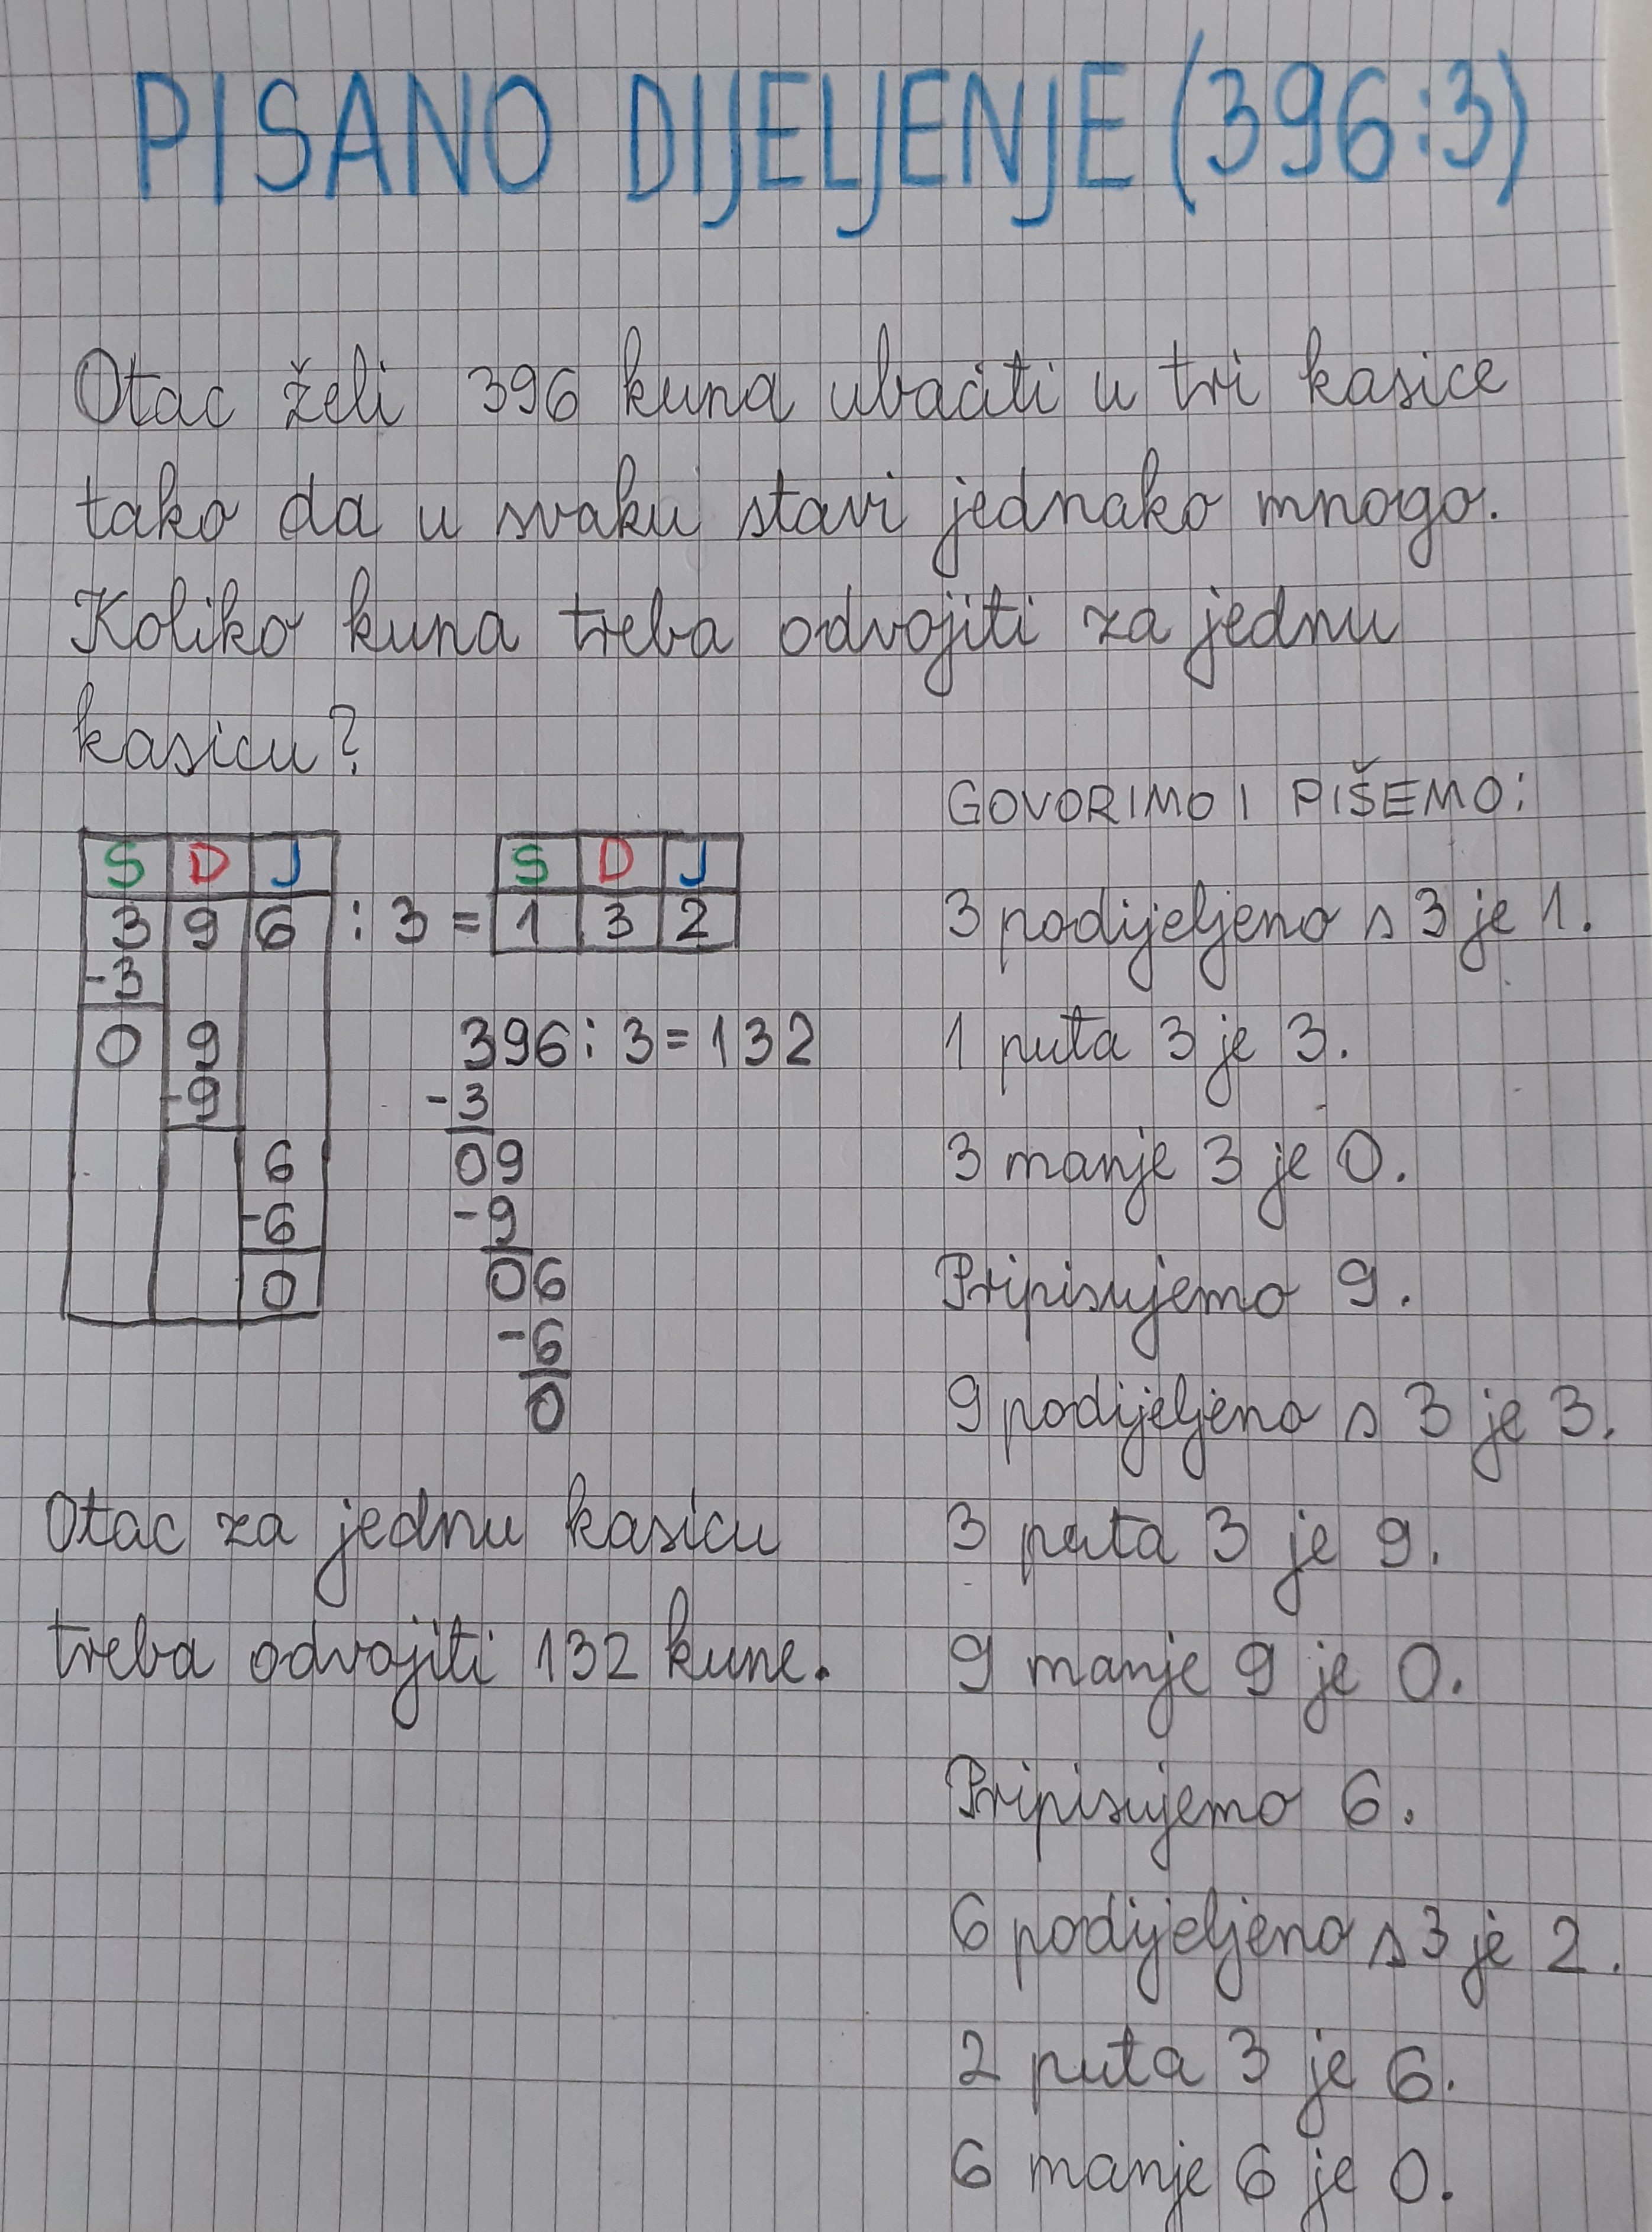 PISANO DIJELJENJE (396:3)
Otac želi 396 kuna ubaciti u tri kasice
tako da u svaku stavi jednako mnogo.
Koliko kuna treba odvojiti za jednu
kasicu?
S D J
S D J
3 9 6 : 3 = 1 3 2
-3
0 9
-9
6
-6
0
396:3=132
-3
09
-9
06
-6
0
Otac za jednu kasicu
treba odvojiti 132 kune.
GOVORIMO I PIŠEMO:
3 podijeljeno s 3 je 1.
1 puta 3 je 3.
3 manje 3 je 0.
Pripisujemo 9.
9 podijeljeno s 3 je 3.
3 puta 3 je 9.
9 manje 9 je 0.
Pripisujemo 6.
6 podijeljeno s 3 je 2.
2 puta 3 je 6.
6 manje 6 je 0.